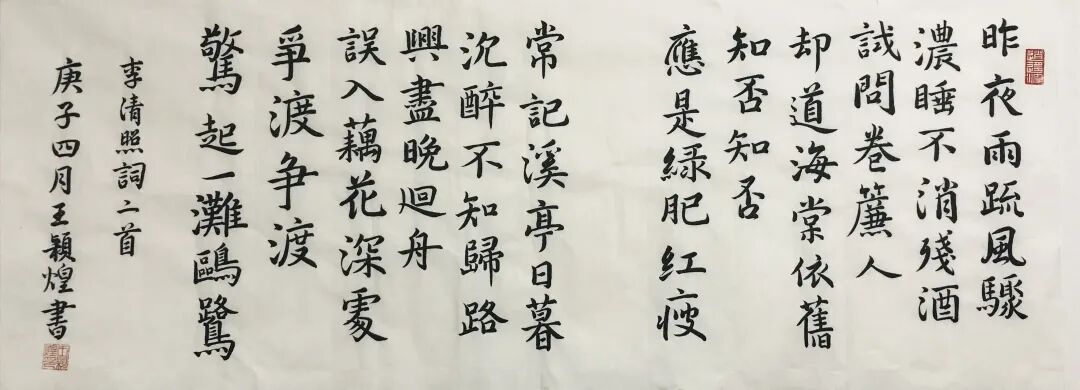 昨夜雨疏風驟
濃睡不消殘酒
試問卷簾人
却道海棠依舊
知否知否
應是綠肥紅瘦
常記溪亭日暮
沉醉不知歸路
興盡晚迴舟
誤入藕花深處
爭渡爭渡
驚起一灘鷗鷺
李清照詞二首
庚子四月王穎煌書